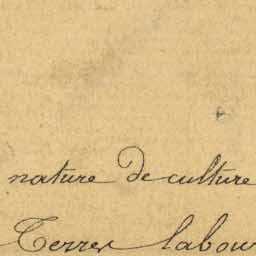 nature de culture
Terres labou